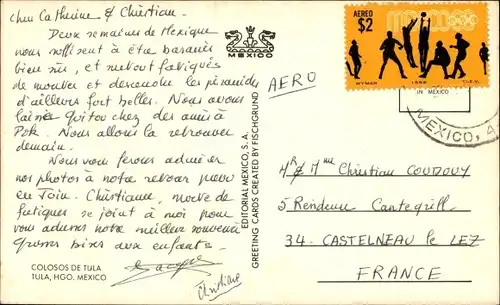 Chers Catherine & Christian.
Deux semaines de Mexique
nous suffisent à être basanés
bien sûr, et surtout fatigués
de monter et descendre les pyramides
d'ailleurs fort belles. Nous avons
laissé chez des amis à
Nous allons la retrouver
demain.
Nous vous ferons admirer
nos photos à notre retour
en Juin. Christiane, morte de
fatigues se joint à moi pour
vous adresser notre meilleur souvenir
Grosses bises aux enfants.
Jacques
Christiane
COLOSOS DE TULA
TULA, HGO. MEXICO
MEXICO
EDITORIAL MEXICO, S. A.
GREETING CARDS CREATED BY FISCHGRUND
AERO
AEREO
$2
MEXICO
1968
T.I.E.V.
IN MEXICO
MEXICO, A
Mr & Mme Christian COUDOUY
5 Résidence Cantegrill
34. CASTELNEAU le LEZ
FRANCE